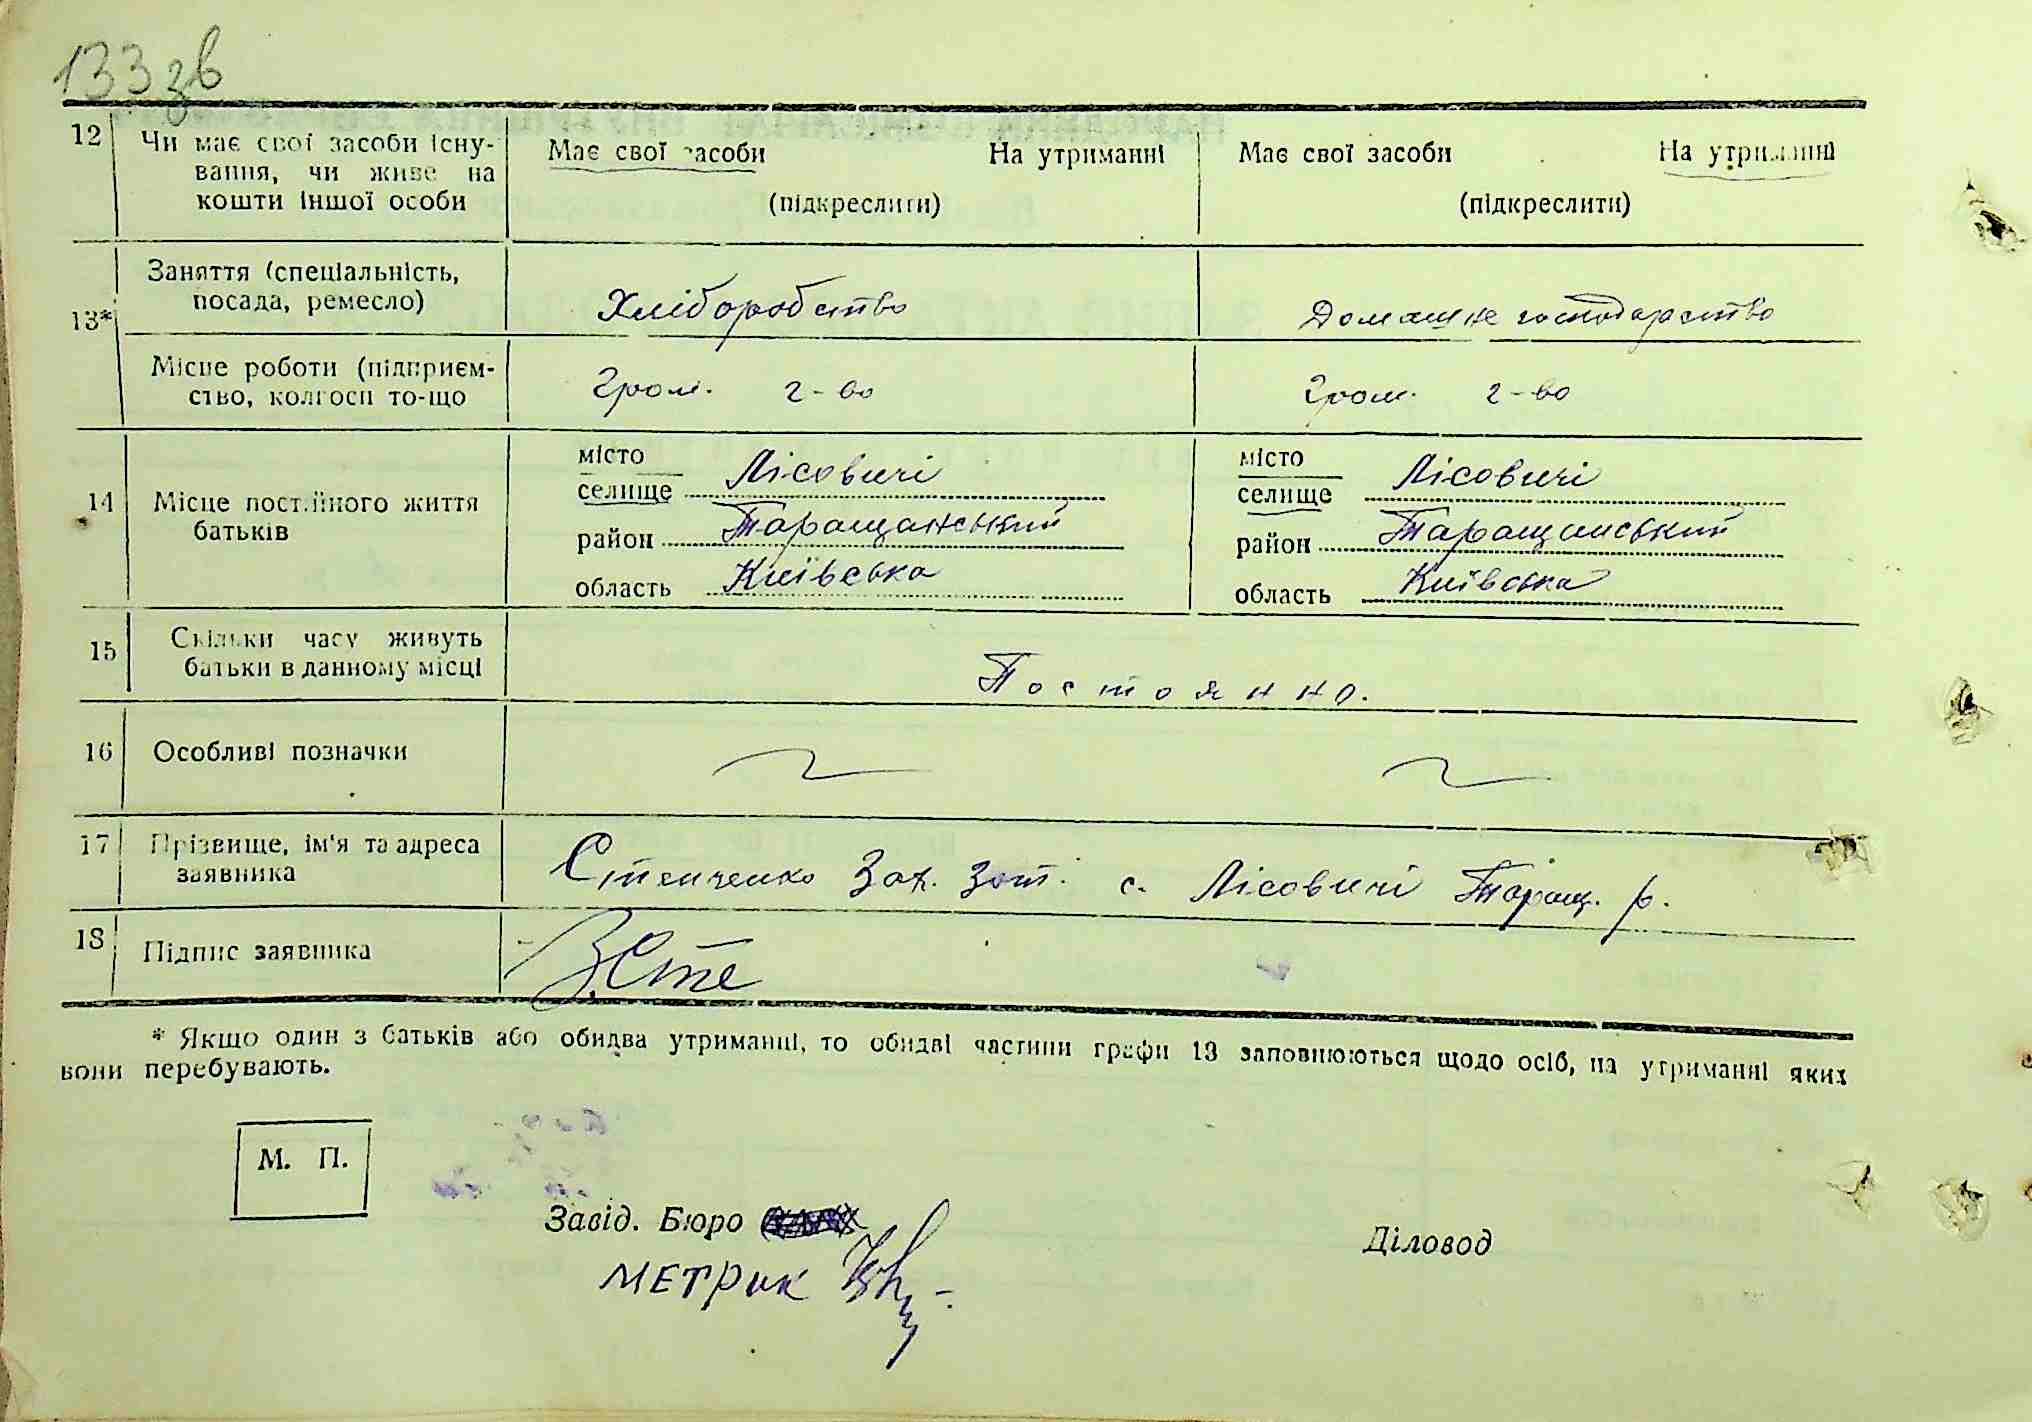 133 зв
12 Чи має свої засоби існу-
вання, чи живе на
кошти іншої особи
Має свої засоби На утриманні
(підкреслити)
Має свої засоби На утриманні
(підкреслити)
13*
Заняття (спеціальність,
посада, ремесло)
Хліборобство
Домашнє господарство
Місце роботи (підприєм-
ство, колгосп то-що
Гром. г-во
Гром. г-во
14 Місце постійного життя
батьків
місто
селище Лісовичі
район Таращанський
область Київська
місто
селище Лісовичі
район Таращанський
область Київська
15 Скільки часу живуть
батьки в данному місці
Постоянно.
16 Особливі позначки
17 Прізвище, ім'я та адреса
заявника
Стенченко Зах. Зот. с. Лісовичі Таращ. р.
18 Підпис заявника
З.Сте
* Якщо один з батьків або обидва утриманні, то обидві частини графи 13 заповнюються щодо осіб, на утриманні яких
вони перебувають.
М. П.
Завід. Бюро
МЕТРик
Діловод